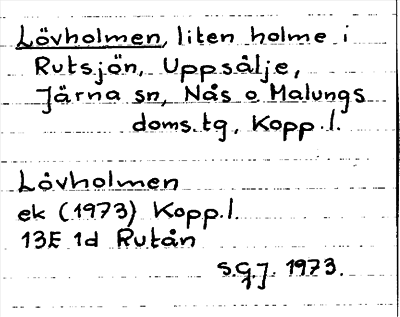 Lövholmen, liten holme i
Rutsjön, Uppsälje,
Järna sn, Nås o Malungs
doms.tg, Kopp.l.
Lövholmen
ek (1973) Kopp.l.
13E 1d Rutån
S.G.J. 1973.